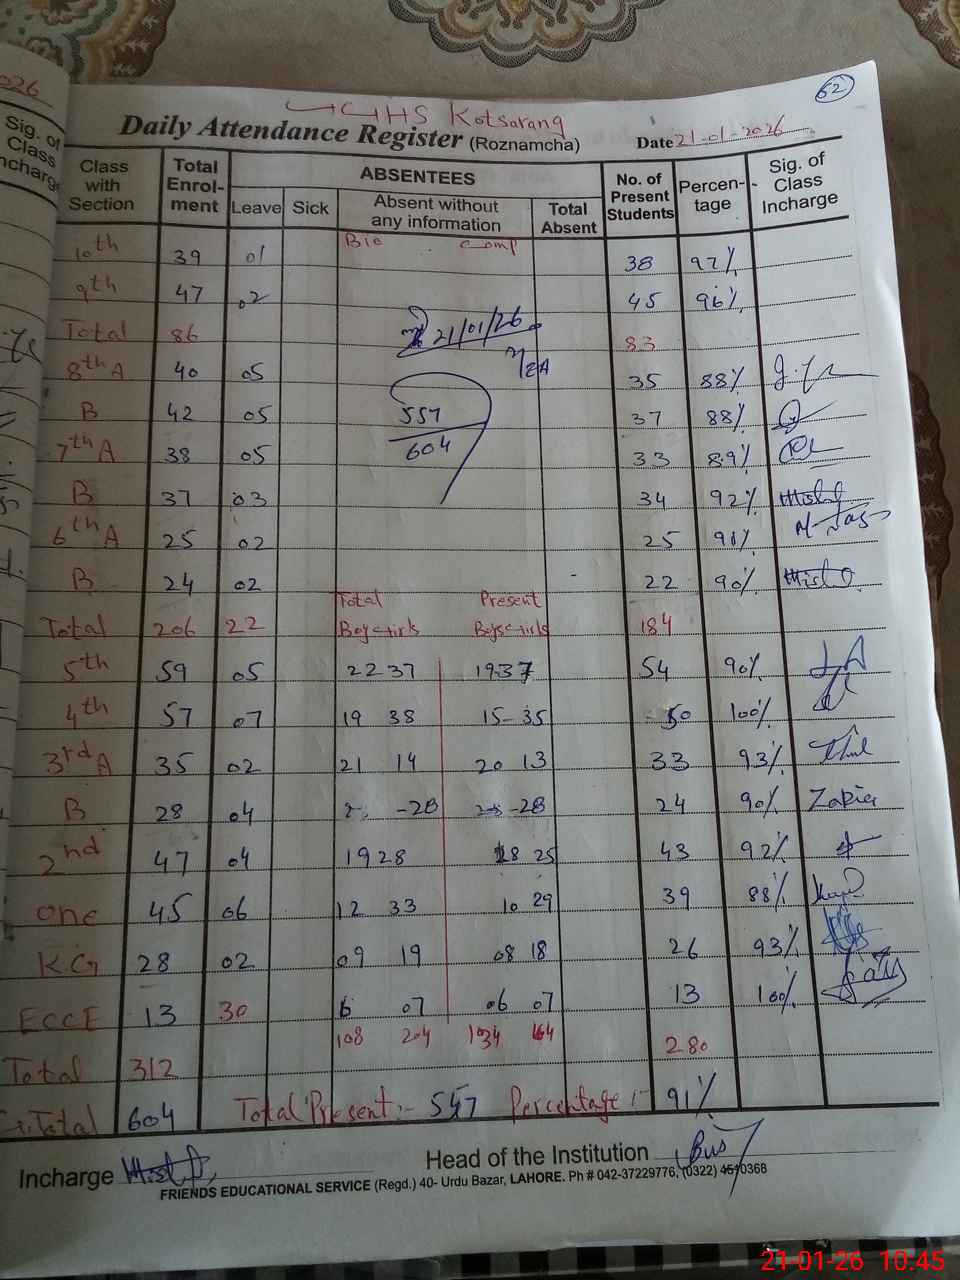 026
62
GHS Kotsarang
Daily Attendance Register (Roznamcha) Date 21-01-2026
Sig. of Class Incharge
Class with Section Total Enrol-ment ABSENTEES No. of Present Students Percen-tage Sig. of Class Incharge
Leave Sick Absent without any information Total Absent
10th 39 01 Bio comp 38 97%
9th 47 02 45 96%
Total 86 21/01/26 83
8th A 40 05 35 88%
B 42 05 557 37 88%
7th A 38 05 604 33 89%
B 37 03 34 92%
6th A 25 02 25 98%
B 24 02 - 22 90%
Total Present
Total 206 22 Boys Girls Boys Girls 184
5th 59 05 22 37 19 37 54 90%
4th 57 07 19 38 15-35 50 100%
3rd A 35 02 21 14 20 13 33 93%
B 28 04 -28 -28 24 90% Zakia
2nd 47 04 19 28 18 25 43 92%
One 45 06 12 33 10 29 39 88%
K.G 28 02 09 19 08 18 26 93%
ECCE 13 30 6 07 06 07 13 100%
108 204
Total 312 280
G.Total 604 Total Present:- 557 Percentage:- 91%
Incharge Head of the Institution
FRIENDS EDUCATIONAL SERVICE (Regd.) 40- Urdu Bazar, LAHORE. Ph # 042-37229776, (0322) 4510368
21-01-26 10:45